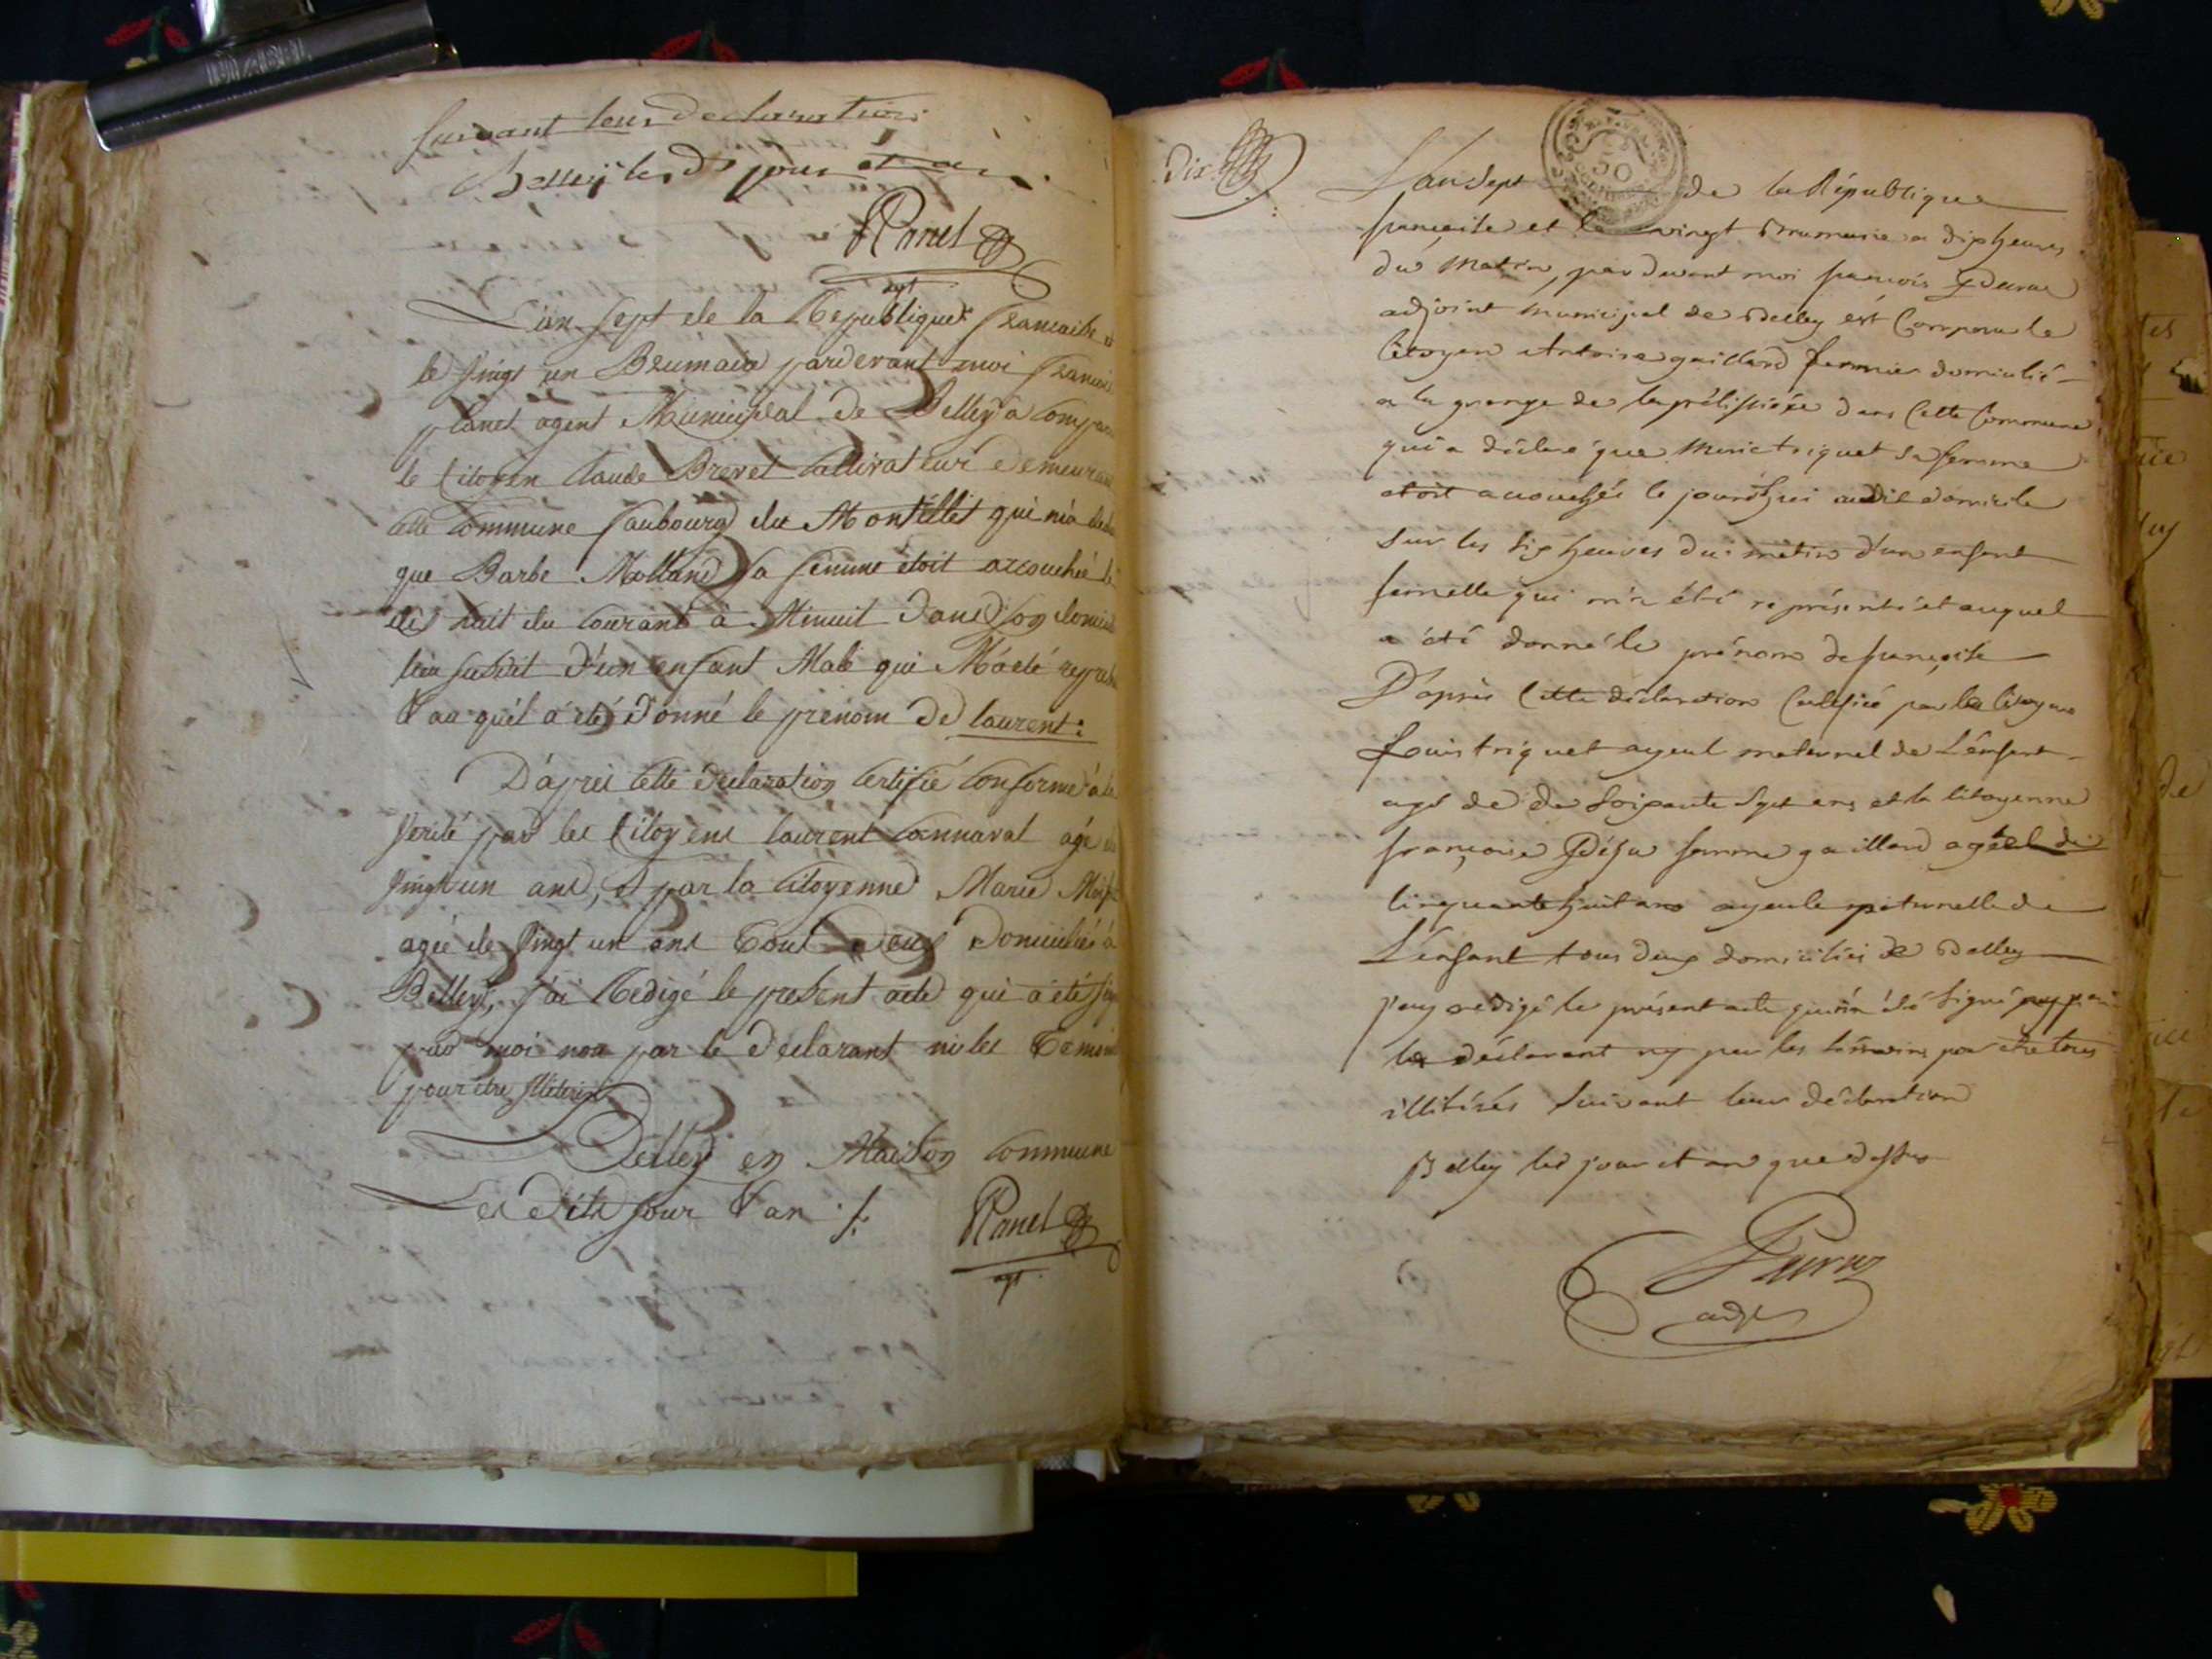 suivant leur declaration
Belley les d. jour et an
Planet
agt
L'an sept de la Republique francaise &
le vingt un Brumaire pardevant moi francois
planet agent Municipal de Belley à compar
le Citoyen Claude Brevet Cultivateur demeurant
cette Commune faubourg du Montillet qui m'a
que Barbe Molland sa femme etoit accouchée le
dix huit du Courant à Minuit dans son domic
lieu susdit d'un enfant Male qui M'a eté repres
& au quel a eté donné le prenom de laurent :
D'aprés cette declaration Certifié Conforme à la
verité par les Citoyens laurent Connaval agé de
vingt un ans, & par la Citoyenne Marie
agée de vingt un ans tous deux Domiciliés à
Belley, j'ai Redigé le present acte qui a eté sig
par moi non par le declarant ni les temoins
pour être Illeteris
Belley en Maison Commune
Les dits jour & an
Planet
agt
Dix
L'an sept de la République
française et le vingt Brumaire a dix heures
du Matin, par devant moi françois
adjoint municipal de Belley est Comparu le
Citoyen Antoine gaillard fermier domicilié
a la grange de la pélissière dans Cette Commune
qui a déclaré que Marie triquet sa femme
etoit accouchée le jourd'hui audit domicile
sur les six heures du matin d'un enfant
femelle qui m'a été représenté et auquel
a été donné le prénom de françoise
D'après Cette déclaration Certifiée par le Citoyen
Louis triquet ayeul maternel de L'enfant
agé de de soixante sept ans et la Citoyenne
françoise femme gaillard agée de
Cinquante huit ans ayeule paternelle de
L'enfant tous deux domiciliés de Belley
j'ay redigé le présent acte qui n'a été signé ny par
le déclarant ny par les témoins pour etre tous
illitérés suivant leur déclaration
Belley les jour et an que dessus
adjt
50